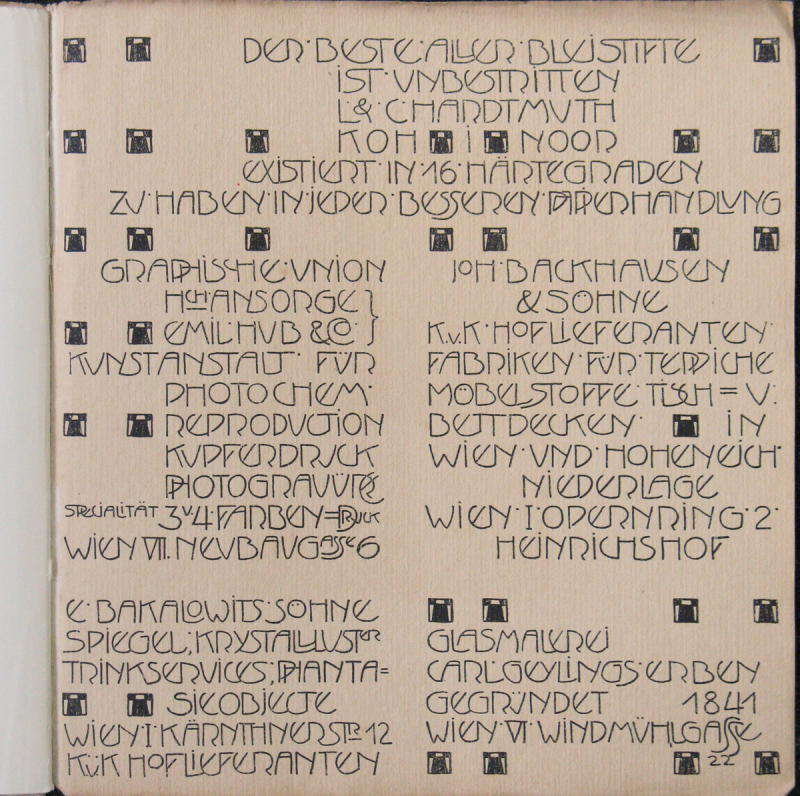 DER·BESTE·ALLER·BLEISTIFTE
IST·UNBESTRITTEN
L·&·C·HARDTMUTH
KOH I NOOR
EXISTIERT·IN·16·HÄRTEGRADEN
ZU·HABEN·IN·JEDER·BESSEREN·PAPIERHANDLUNG
GRAPHISCHE·UNION
HCH·ANSORGE }
EMIL·HUB & CO }
KUNSTANSTALT· FÜR
PHOTOCHEM·
REPRODUCTION
KUPFERDRUCK
PHOTOGRAVÜRE
SPECIALITÄT 3 U 4·FARBEN=DRUCK
WIEN VII. NEUBAUGASSE 6
JOH·BACKHAUSEN
& SÖHNE
K.u.K·HOFLIEFERANTEN·
FABRIKEN·FÜR·TEPPICHE
MÖBELSTOFFE TISCH = U.
BETTDECKEN· IN
WIEN·UND·HOHENEICH·
NIEDERLAGE
WIEN·I·OPERNRING·2·
HEINRICHSHOF
E·BAKALOWITS·SÖHNE
SPIEGEL; KRYSTALLLUSTER
TRINKSERVICES; PHANTA=
SIEOBJECTE
WIEN·I·KÄRNTHNERSTR 12
K.u.K HOFLIEFERANTEN
GLASMALEREI
CARL·GEYLINGS·ERBEN
GEGRÜNDET 1841
WIEN·VI·WINDMÜHLGASSE
22